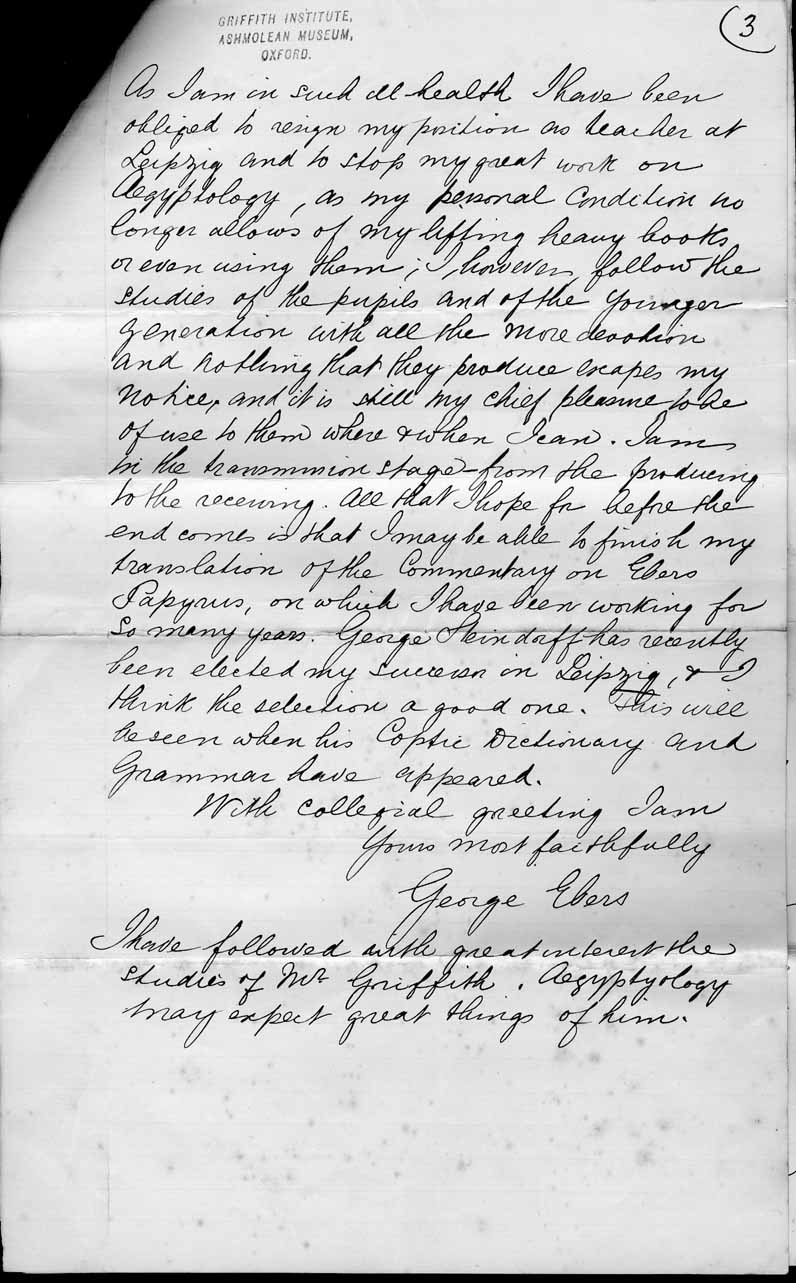 GRIFFITH INSTITUTE,
ASHMOLEAN MUSEUM,
OXFORD.
3
As I am in such ill-health I have been
obliged to resign my position as teacher at
Leipzig and to stop my great work on
Aegyptology, as my personal Condition no
longer allows of my lifting heavy books
or even using them; I, however, follow the
studies of the pupils and of the Younger
generation with all the more devotion
and nothing that they produce escapes my
notice, and it is still my chief pleasure to be
of use to them where & when I can. I am
in the transmission stage - from the producing
to the receiving. All that I hope for before the
end comes is that I may be able to finish my
translation of the Commentary on Ebers
Papyrus, on which I have been working for
so many years. George Steindorff has recently
been elected my successor in Leipzig, & I
think the selection a good one. This will
be seen when his Coptic Dictionary and
Grammar have appeared.
With collegial greeting I am
Yours most faithfully
George Ebers
I have followed with great interest the
studies of Mr Griffith. Aegyptyology
may expect great things of him.